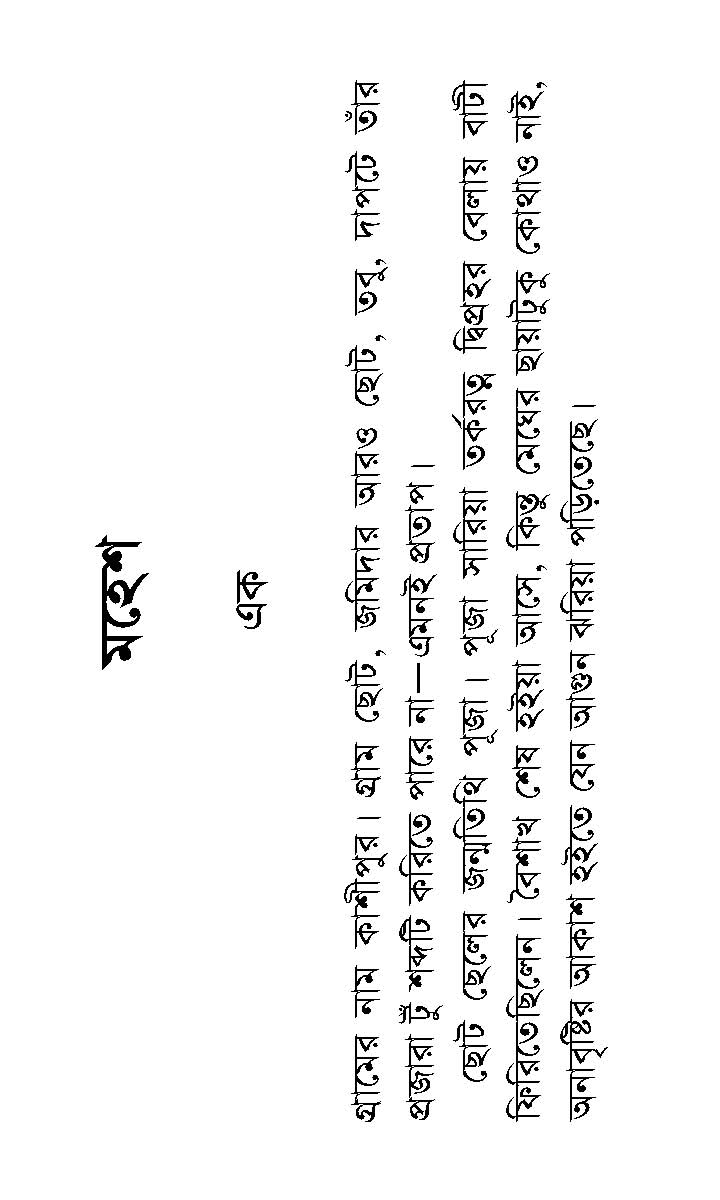 মহেশ
এক
গ্রামের নাম কাশীপুর। গ্রাম ছোট, জমিদার আরও ছোট, তবু, দাপটে তাঁর
প্রজারা টুঁ শব্দটি করিতে পারে না—এমনই প্রতাপ।
ছোট ছেলের জন্মতিথি পূজা। পূজা সারিয়া তর্করত্ন দ্বিপ্রহর বেলায় বাটী
ফিরিতেছিলেন। বৈশাখ শেষ হইয়া আসে, কিন্তু মেঘের ছায়াটুকু কোথাও নাই,
অনাবৃষ্টির আকাশ হইতে যেন আগুন ঝরিয়া পড়িতেছে।